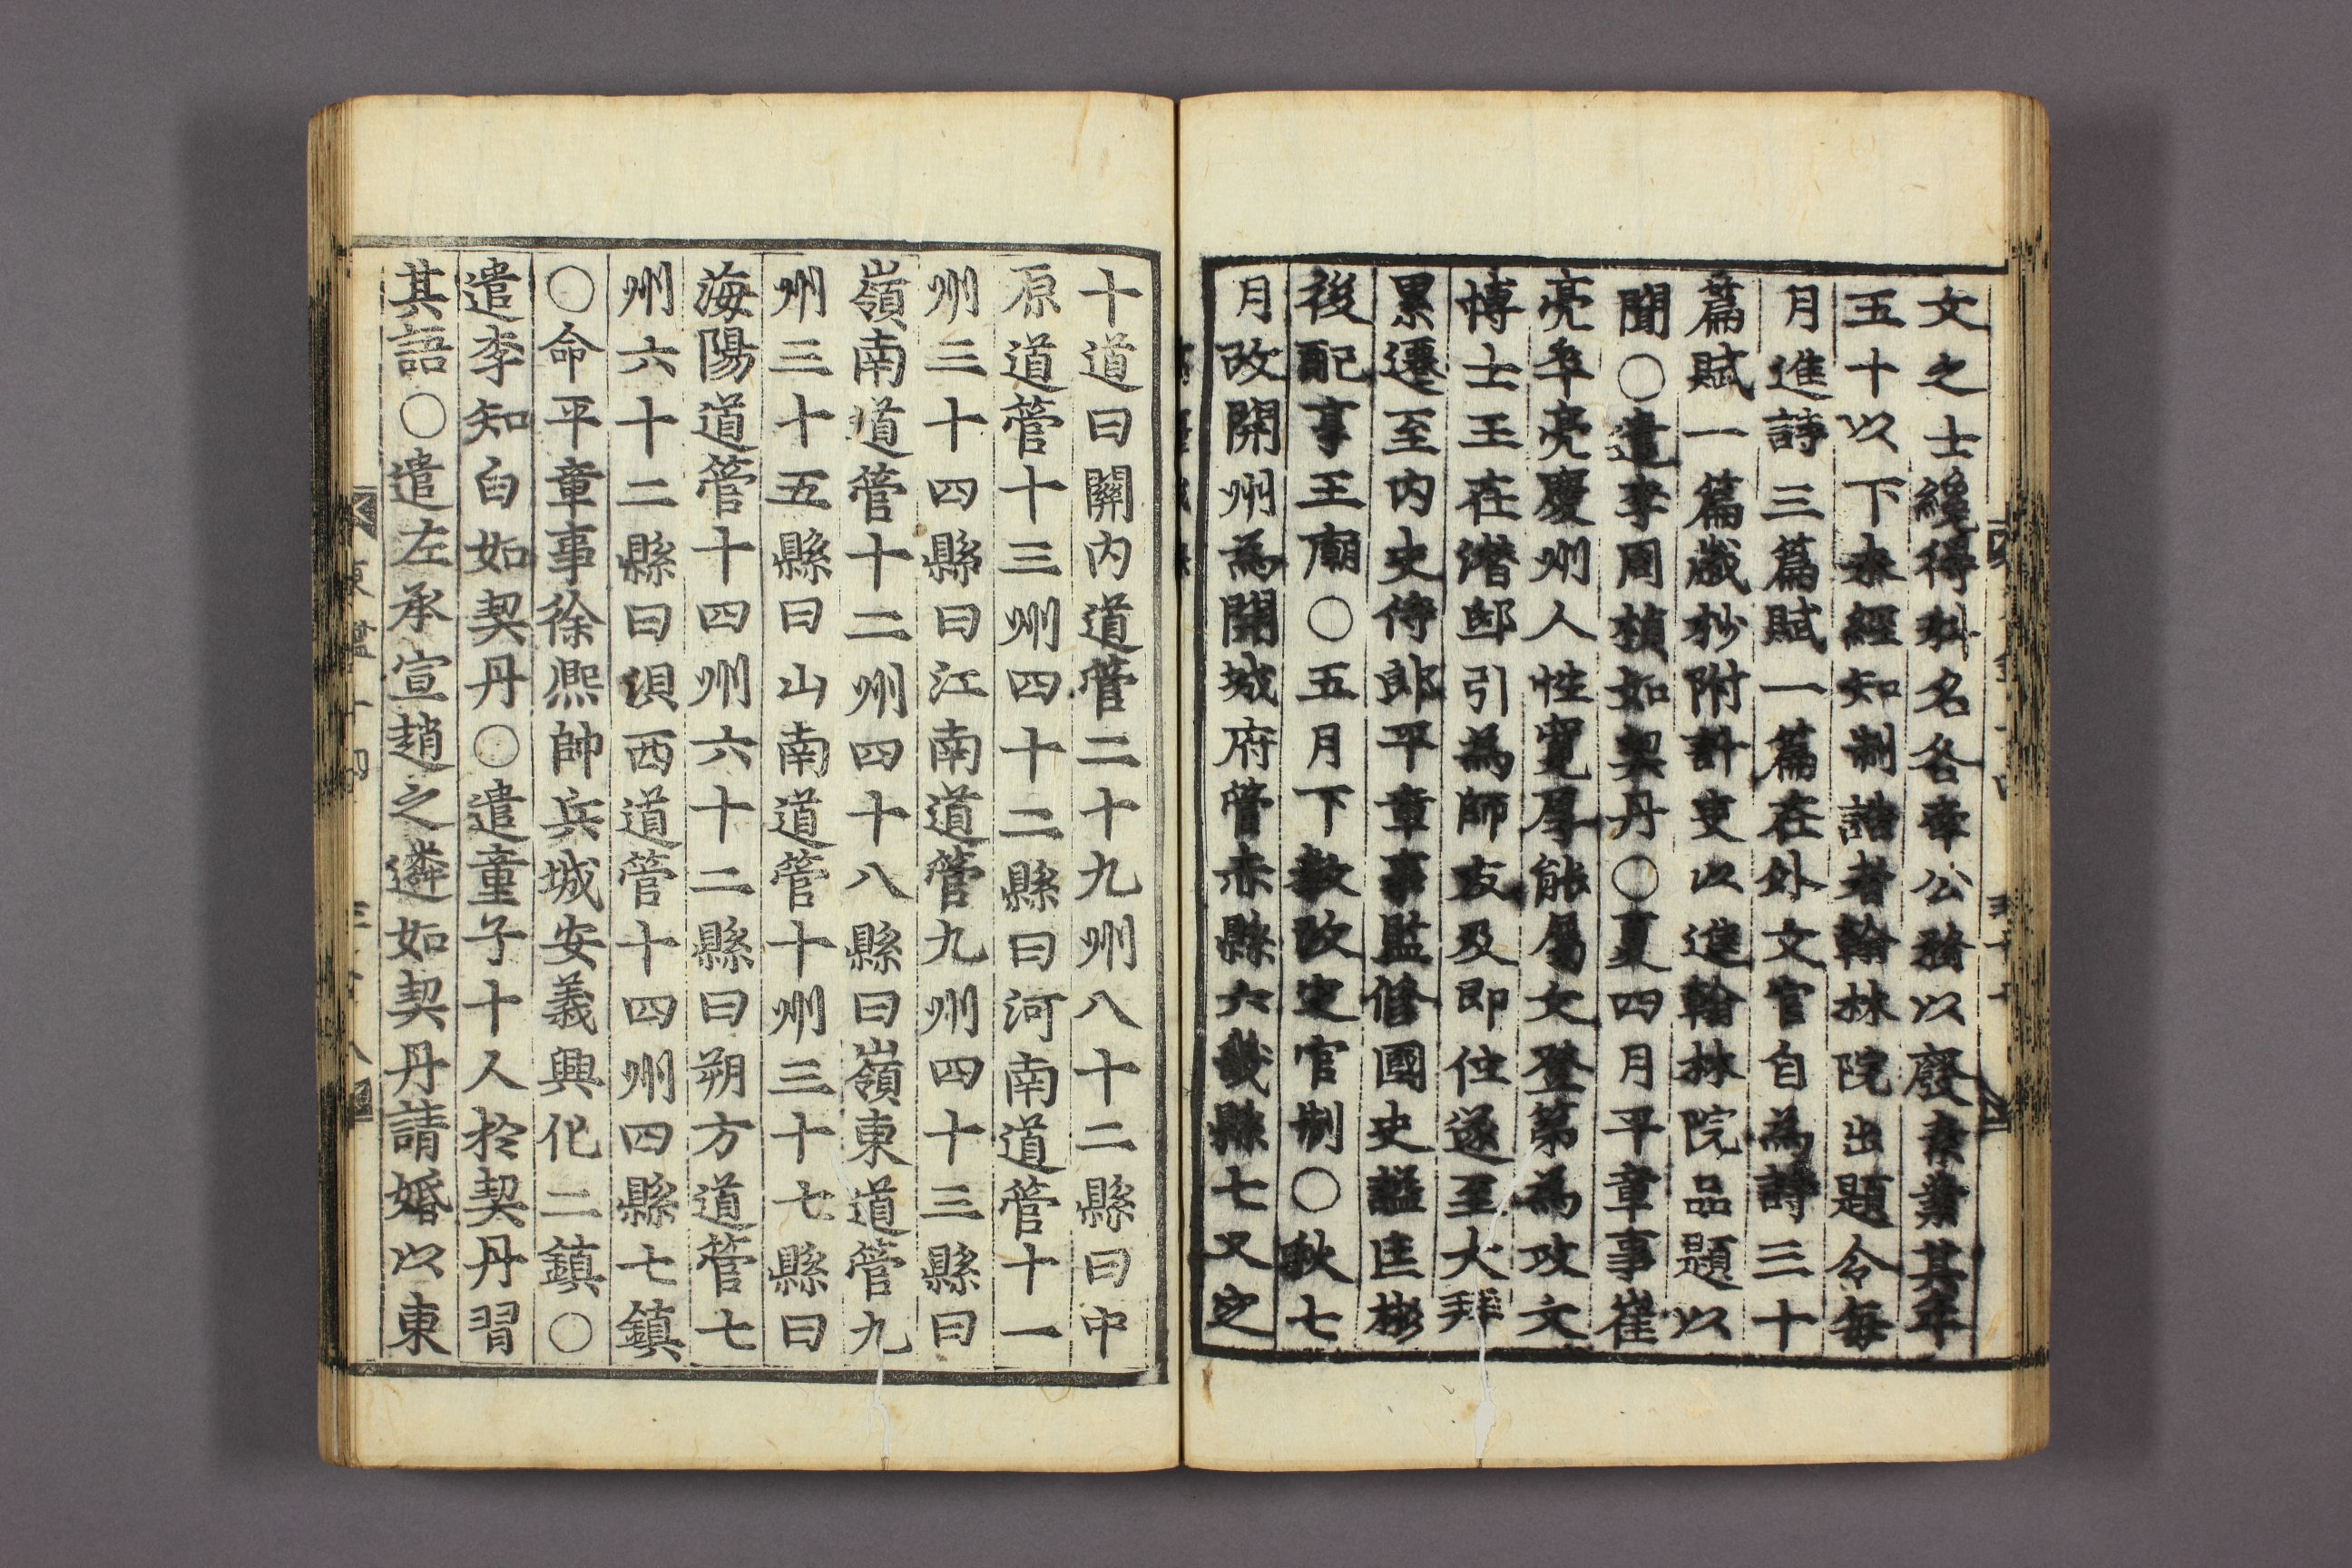 文之士纔得科名各牽公務以廢素業其年
五十以下未經知制誥者翰林院出題令每
月進詩三篇賦一篇在外文官自為詩三十
篇賦一篇歲抄附計吏以進翰林院品題以
聞○遣李周楨如契丹○夏四月平章事崔
亮卒亮慶州人性寬厚能屬文登第為攻文
博士王在潛邸引為師友及即位遂至大拜
累遷至內史侍郎平章事監修國史謚匡彬
後配享王廟○五月下教改定官制○秋七
月改開州為開城府管赤縣六畿縣七又定
十道曰關內道管二十九州八十二縣曰中
原道管十三州四十二縣曰河南道管十一
州三十四縣曰江南道管九州四十三縣曰
嶺南道管十二州四十八縣曰嶺東道管九
州三十五縣曰山南道管十州三十七縣曰
海陽道管十四州六十二縣曰朔方道管七
州六十二縣曰浿西道管十四州四縣七鎮
○命平章事徐熙帥兵城安義興化二鎮○
遣李知白如契丹○遣童子十人於契丹習
其語○遣左承宣趙之遴如契丹請婚以東